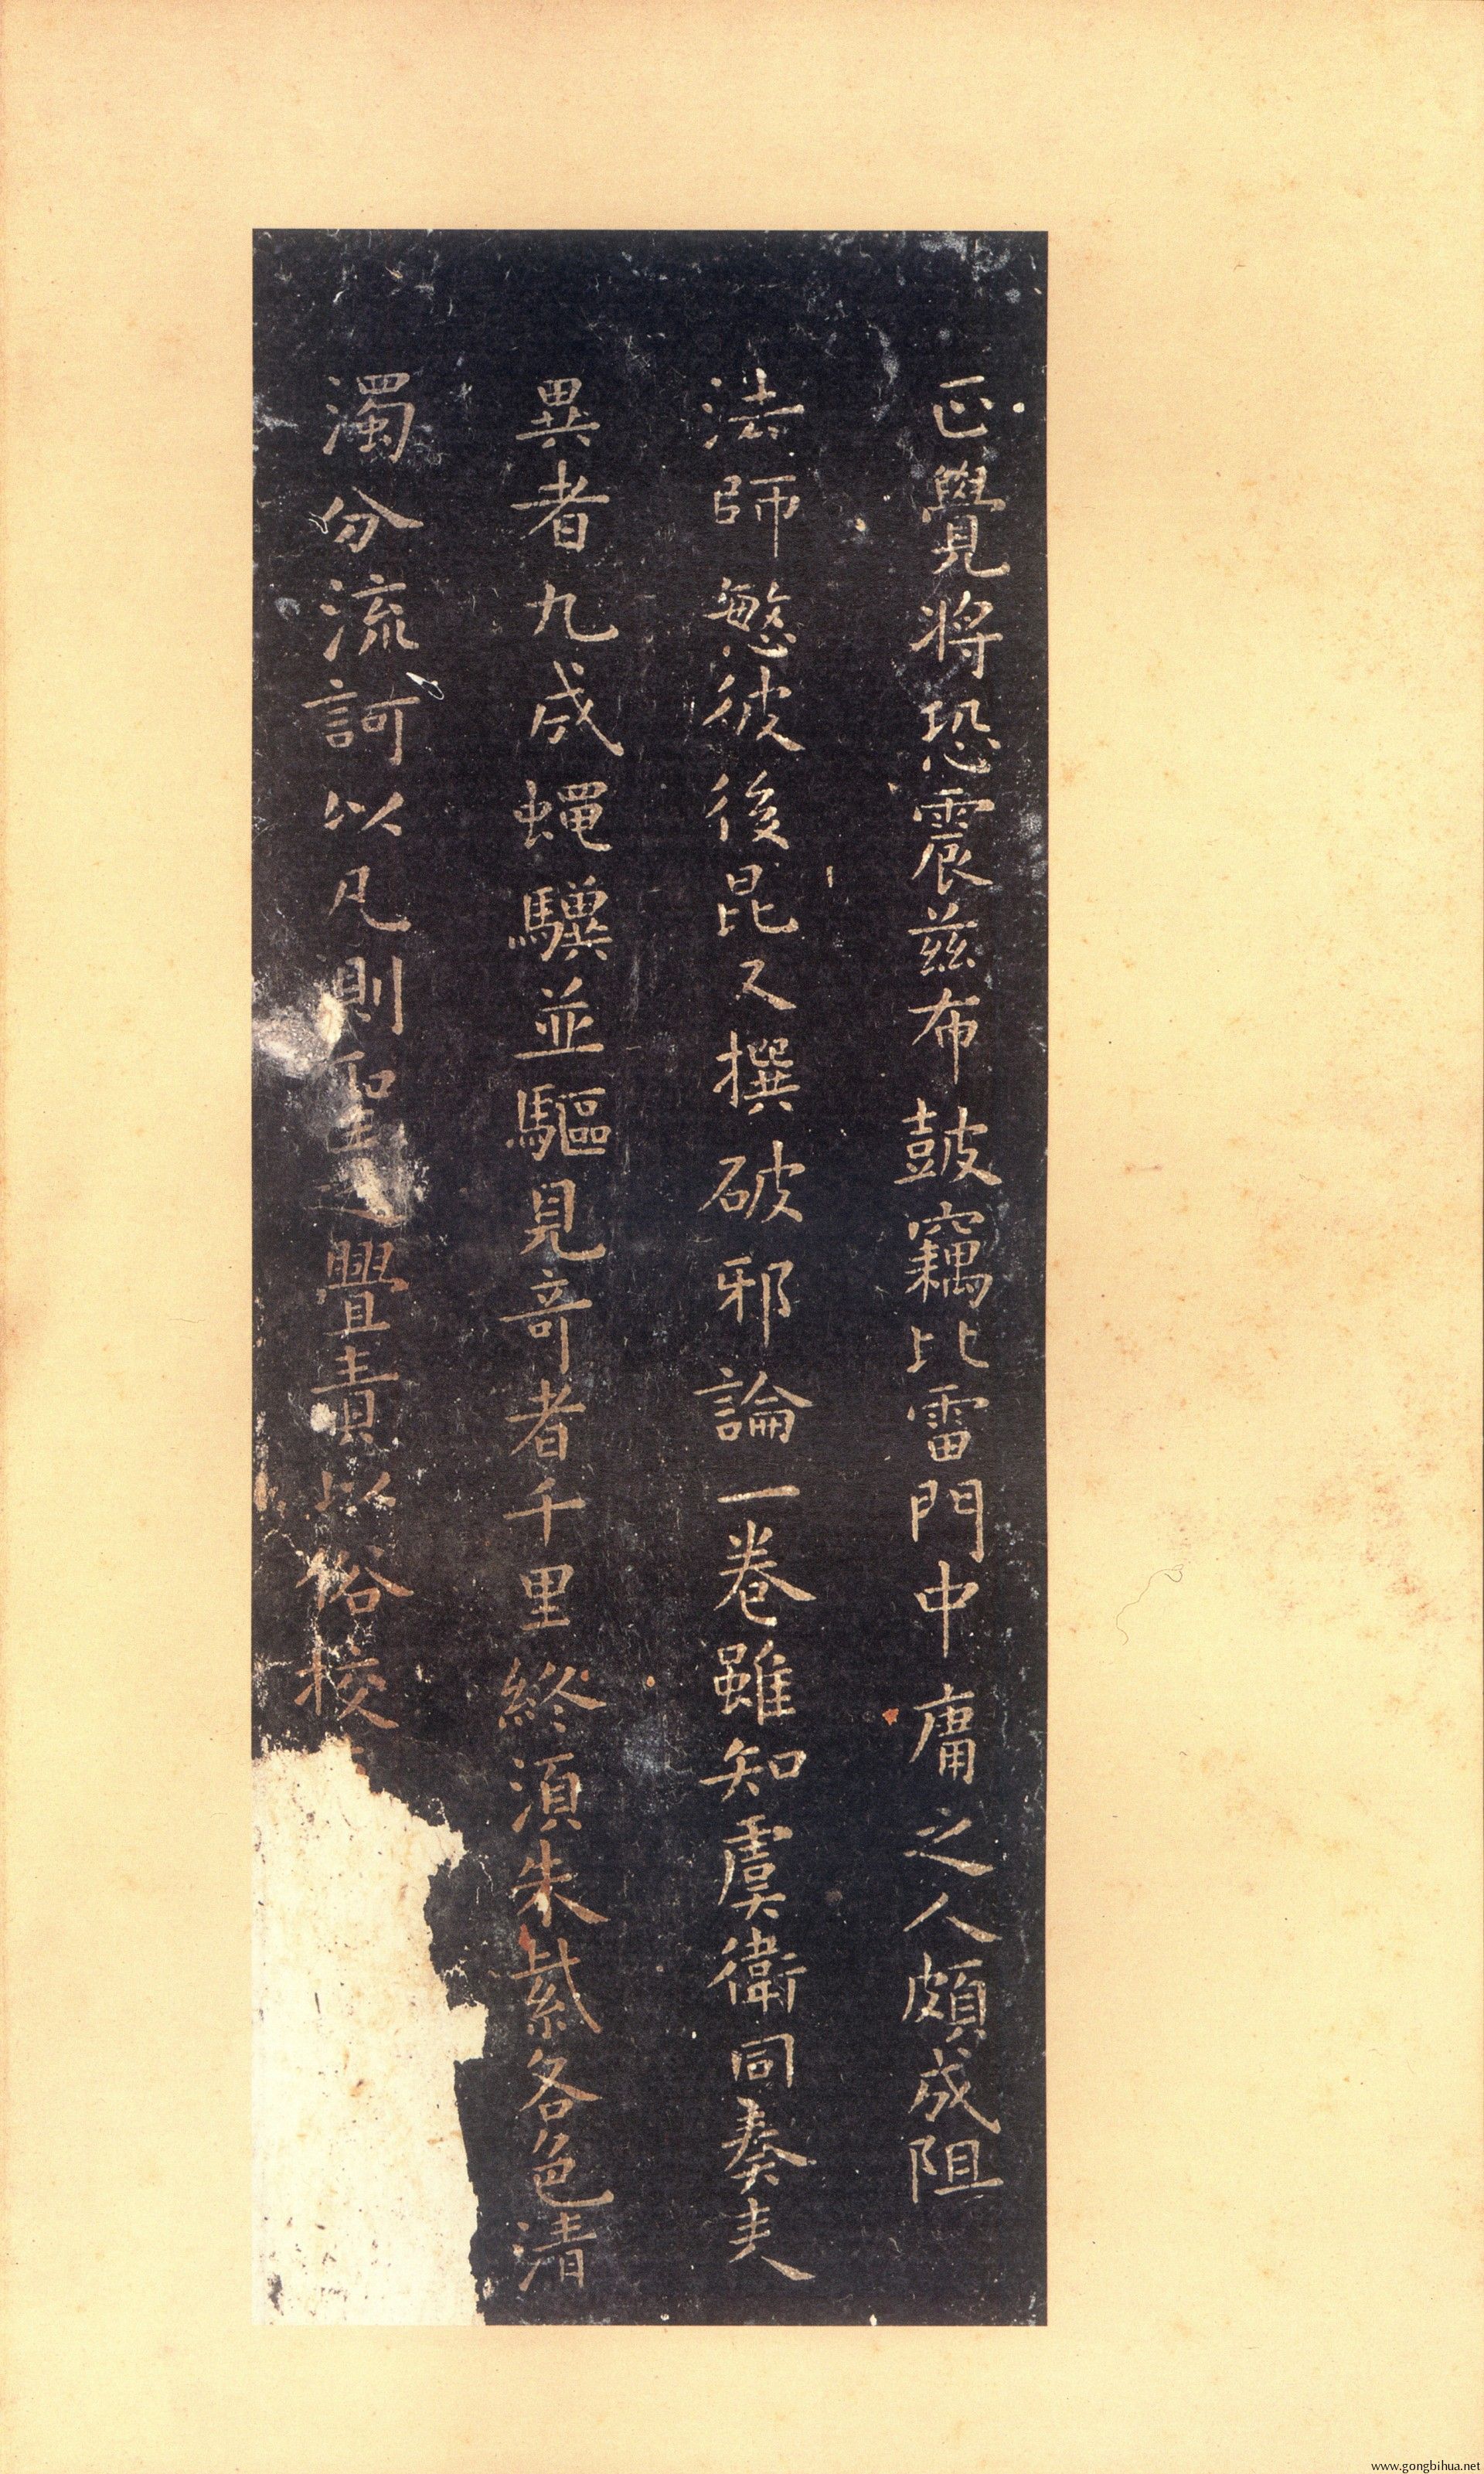 正覺將恐震茲布鼓竊比雷門中庸之人頗成阻
法師慜彼後昆又撰破邪論一卷雖知虞衛同奏夫
異者九成蝿驥並驅見竒者千里終湏朱紫各色清
濁分流訶以凡則聖之舋責以俗挍
www.gongbihua.net